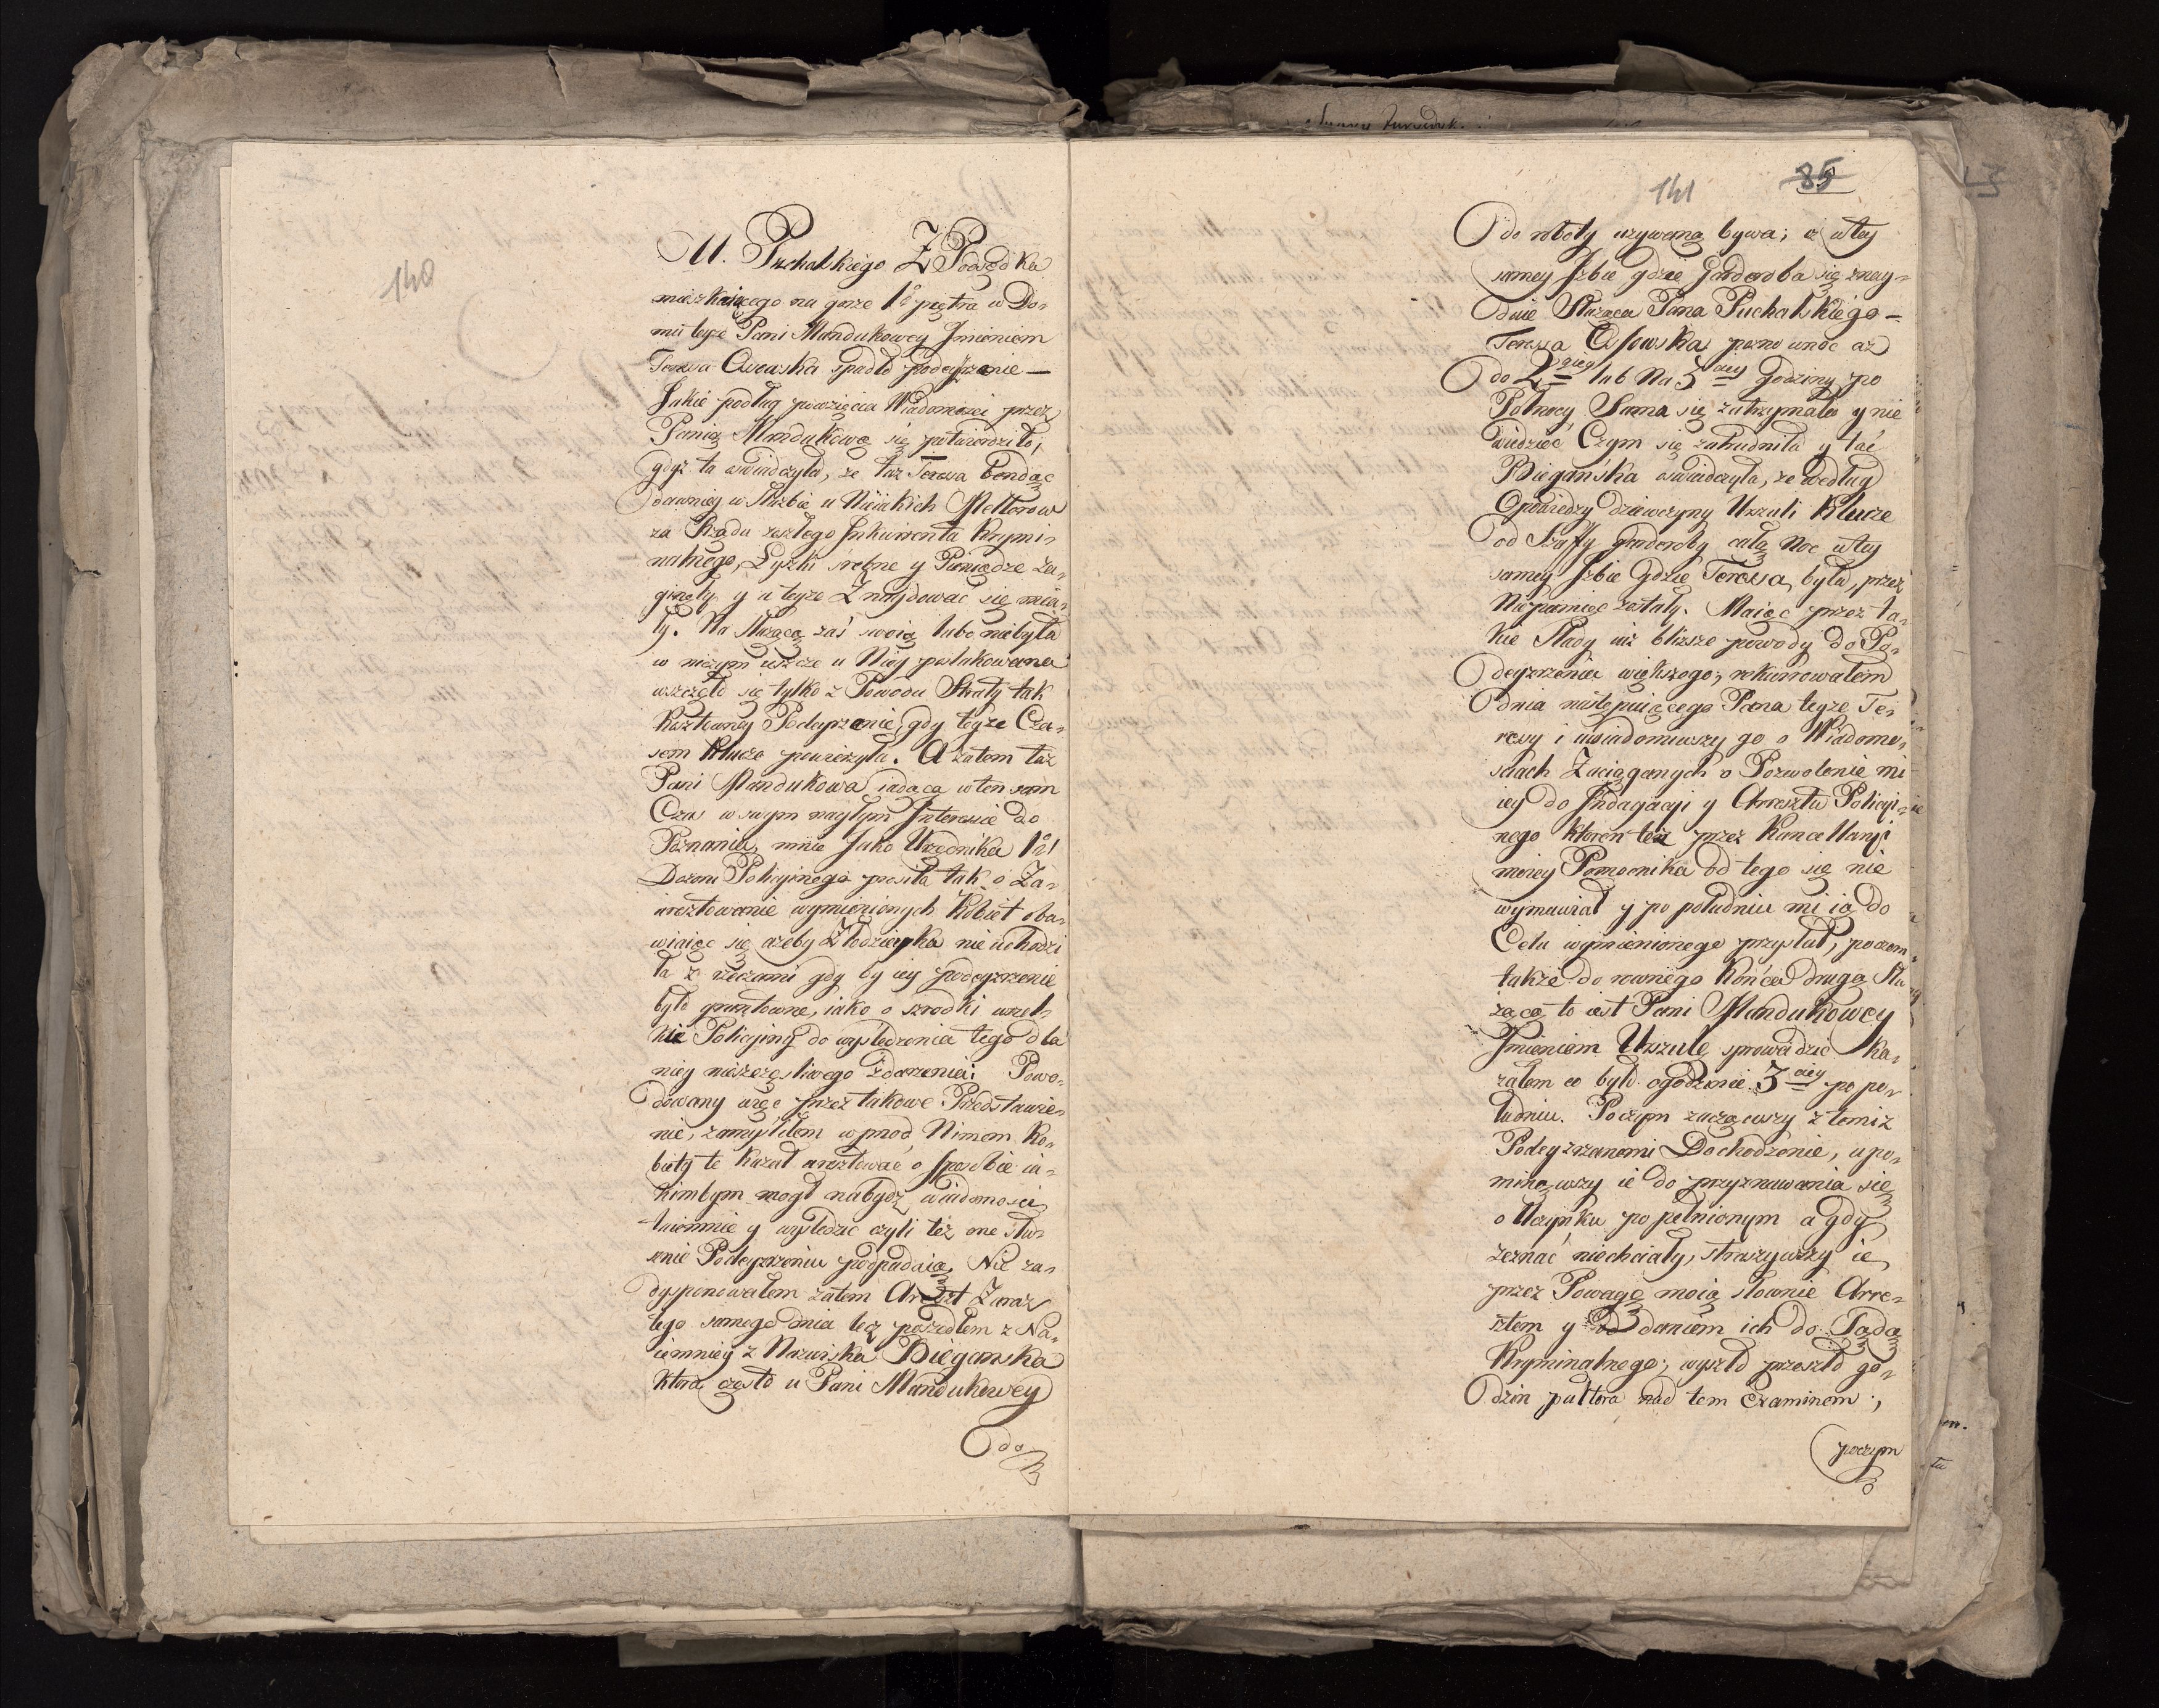 140
M. Puchalskiego Z Podsędka
mieszkaiącego na gorze 1o piętra w Do-
mu teyże Pani Mandukowey Imieniem
Teressa Osowska spadło podeyrzenie —
Jakie podług powzięcia Wiadomosci przez
Panią Mandukową się potwierdziło,
gdyż ta oswiadczyła, ze taż Teressa będąc
dawniey w Służbie u Nieiakich Mellerow
za Rządu zeszłego Inkwirenta Krymi-
nalnego, Łyszki śrebne y Pieniądze za-
ginęły y u teyze Znajdować się mia-
ły. Na Służącą zaś swoią lubo niebyła
w niczym ieszcze u Niey poszlakowana
wszczęło się tylko z Powodu Straty tak
Kosztowney Podeyrzenie, gdy teyze Cza-
sem Klucze powierzyła. A zatem taż
Pani Mandukowa iadąca w ten sam
Czas w swym nagłym Interessie do
Poznania, mnie Jako Urzędnika
Dozoru Policyinego prosiła tak o Za-
aresztowanie wymienionych Kobiet oba-
wiaiąc się ażeby Złodzieyka nie uchodzi-
ła z rzeczami gdy by iey podeyrzenie
było gruntowne, iako o srzodki wzel-
kie Policyiny do wyśledzenia tego dla
niey nieszczęsliwego zdarzenia: Powo-
dowany więc przez takowe Przedstawie-
nie, zamyśliłem wprzod Nimem Ko-
biety te Kazał aresztować o sposobie ia-
kimbym mogł nabydź wiadomosci
taiemnie y wyśledzic czyli też one słu-
sznie Podeyrzeniu podpadaią, Nie za-
dysponowałem zatem Areszt Zaraz
tego samego dnia lecz poszedłem z Na-
iemniey z Nazwiska Biegańska
która często u Pani Mandukowey
do
141
85
do roboty uzywaną bywa; a w tey
samey Izbie gdzie Garderoba się znay-
duie Służąca Pana Puchalskiego —
Teressa Osowska pozno w noc aż
do 2giey lub Na 3ciey Godziny po
Połnocy Sama się zatrzymała y nie
wiedzieć Czym się zatrudniła y taż
Biegańska oswiadczyła, ze według
Opowiedzy dziewczyny Urzuli Klucze
od Szaffy Garderoby całą Noc w tey
samey Izbie Gdzie Teressa była, przez
Niepamięć zostały. Maiąc przez ta-
kie Slady iuż bliższe powody do Po-
deyrzenia większego; rekwirowałem
dnia następuiącego Pana teyze Te-
ressy i uwiadomiwszy go o Wiadomo-
sciach Zaciąganych o Pozwolenie mi
iey do Indagacyi y Aresztu Policyi-
nego ktoren też przez Kancellaryi
moiey Pomocnika od tego się nie
wymawiał y po południu mi ią do
Celu wymienionego przysłał, poczem
także do rownego Końca drugą Słu-
żącą to iest Pani Mandukowey
Imieniem Urszulę sprowadzic ka-
załem co było o godzinie 3ciey po po-
łudniu. Poczym zacząwszy z temiz
Podeyzrzanemi Dochodzenie, upo-
minawszy ie do przyznawania się
o Uczynku popełnionym a gdy
zeznać niechciały, straszywszy ie
przez Powagę moią słownie Arre-
sztem y oddaniem ich do Sądu
Kryminalnego; wyszło przeszło go-
dzin pułtora nad tem Examinem;
poczym